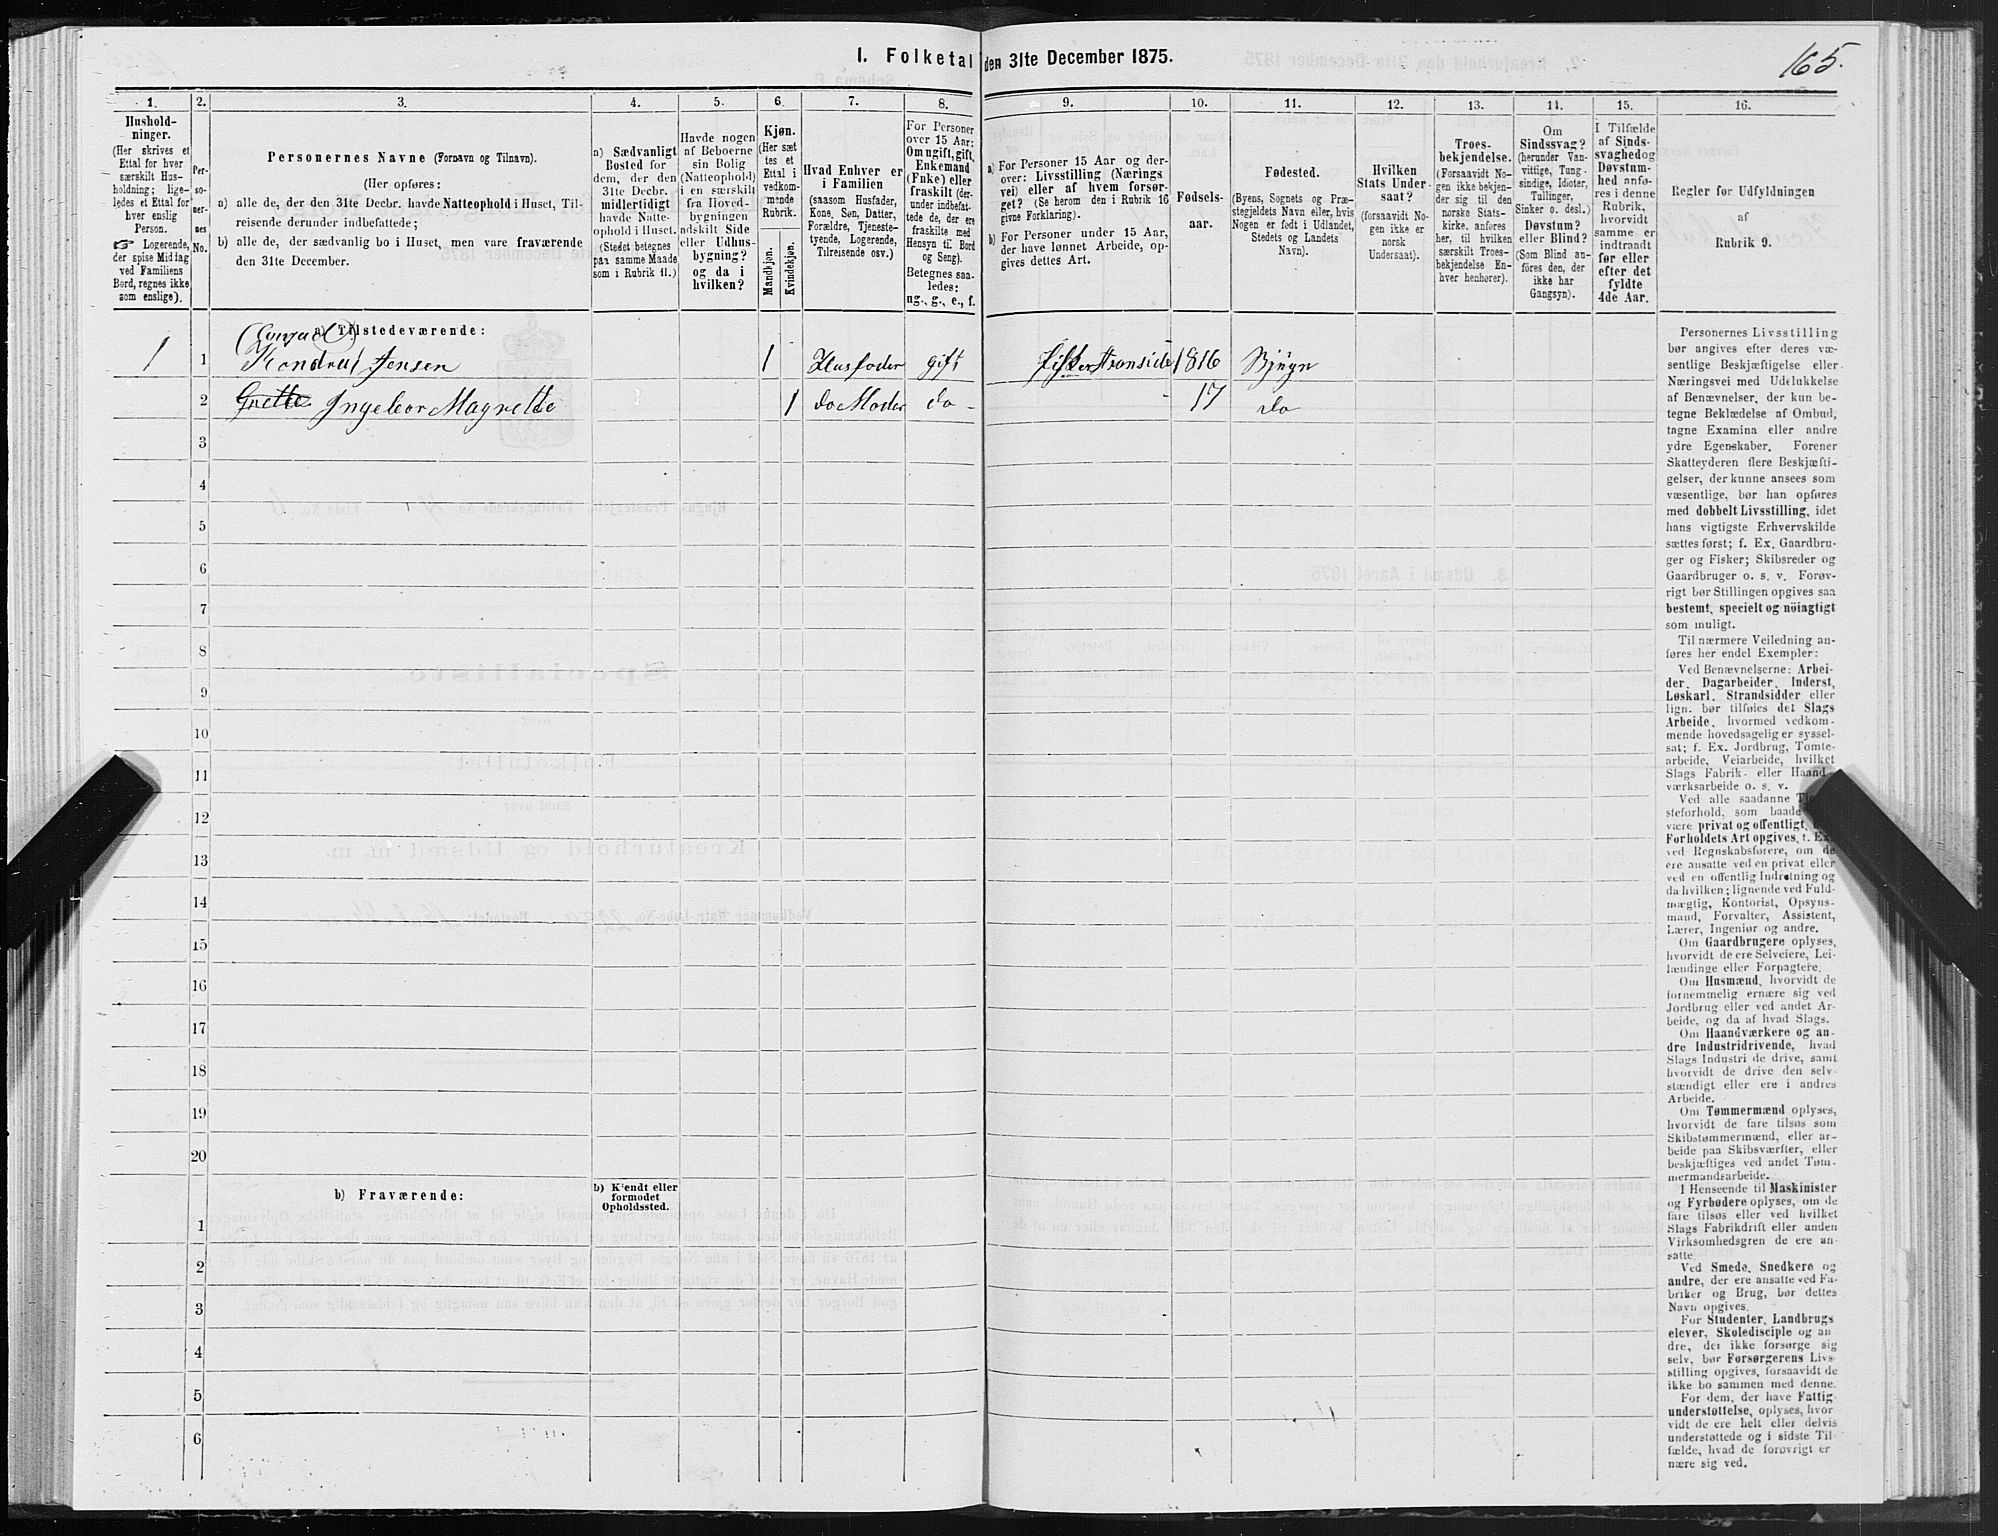 I. Folketal den 31te December 1875.
165.
1.
Hushold-
ninger.
(Her skrives et
Ettal for hver
særskilt Hus-
holdning; lige-
ledes et Ettal for
hver enslig
Person.
☞ Logerende,
der spise Middag
ved Familiens
Bord, regnes ikke
som enslige).
2.
Per-
so-
ner-
nes
No.
3.
Personernes Navne (Fornavn og Tilnavn).
(Her opføres:
a) alle de, der den 31te Decbr. havde Natteophold i Huset, Til-
reisende derunder indbefattede;
b) alle de, der sædvanlig bo i Huset, men vare fraværende
den 31te December.
4.
a) Sædvanligt
Bosted for
dem, der den
31te Decbr.
midlertidigt
havde Natte-
ophold i Huset.
(Stedet betegnes
paa samme Maade
som i Rubrik 11.)
5.
Havde nogen
af Beboerne
sin Bolig
(Natteophold)
i en særskilt
fra Hoved-
bygningen
adskilt Side
eller Udhus-
bygning?
og da i
hvilken?
6.
Kjøn.
(Her sæt
tes et
Ettal i
vedkom-
mende
Rubrik.
Mandkjøn.
Kvindekjøn.
7.
Hvad Enhver er
i Familien
(saasom Husfader,
Kone, Søn, Datter,
Forældre, Tjeneste-
tyende, Logerende,
Tilreisende osv.)
8.
For Personer
over 15 Aar:
Om ugift, gift,
Enkemand
(Enke) eller
fraskilt (der-
under indbefat-
tede de, der ere
fraskilte med
Hensyn til Bord
og Seng).
Betegnes saa-
ledes:
ug., g., e., f.
9.
a) For Personer 15 Aar og der-
over: Livsstilling (Nærings
vei) eller af hvem forsør-
get? (Se herom den i Rubrik 16
givne Forklaring).
b) For Personer under 15 Aar,
der have lønnet Arbeide, op-
gives dettes Art.
10.
Fødsels-
aar.
11.
Fødested.
(Byens, Sognets og Præ-
stegjeldets Navn eller, hvis
Nogen er født i Udlandet,
Stedets og Landets
Navn).
12.
Hvilken
Stats Under-
saat?
(forsaavidt No-
gen ikke er
norsk
Undersaat).
13.
Troes-
bekjendelse.
(Forsaavidt No-
gen ikke bekjen-
der sig til den
norske Stats-
kirke, anføres
her, til hvilken
særskilt Troes-
bekjendelse En-
hver henhører).
14.
Om
Sindssvag?
(herunder Van-
vittige, Tung-
sindige, Idioter,
Tullinger,
Sinker o. desl.)
Døvstum?
eller Blind?
(Som Blind an-
føres den, der
ikke har
Gangsyn).
15.
I Tilfælde
af Sinds-
svaghed og
Døvstum-
hed anfø-
res i denne
Rubrik,
hvorvidt
samme er
indtraadt
før eller
efter det
fyldte
4de Aar.
16.
Regler for Udfyldningen
af
Rubrik 9.
a) Tilstedeværende:
(Conrad)
1 1 Kondrad Jensen 1 Husfader gift Fisker Stranside 1816 Bjugn
2 Grette Ingebor Magrette 1 do Moder do - - 17 do
3
4
5
6
7
8
9
10
11
12
13
14
15
16
17
18
19
20
b) Fraværende:
b) Kjendt eller
formodet
Opholdssted.
1
2
3
4
5
6
Personernes Livsstilling
bør angives efter deres væ-
sentlige Beskjæftigelse eller
Næringsvei med Udelukkelse
af Benævnelser, der kun be-
tegne Beklædelse af Ombud,
tagne Examina eller andre
ydre Egenskaber. Forener
Skatteyderen flere Beskjæfti-
gelser, der kunne ansees som
væsentlige, bør han opføres
med dobbelt Livsstilling, idet
hans vigtigste Erhvervskilde
sættes først; f. Ex. Gaardbru-
ger og Fisker; Skibsreder og
Gaardbruger o. s. v. Forøv-
rigt bør Stillingen opgives saa
bestemt, specielt og nöiagtigt
som muligt.
Til nærmere Veiledning an-
føres her endel Exempler:
Ved Benævnelserne: Arbei-
der, Dagarbeider, Inderst,
Løskarl, Strandsidder eller
lign. bør tilføies det Slags
Arbeide, hvormed vedkom-
mende hovedsagelig er syssel-
sat; f. Ex. Jordbrug, Tomte-
arbeide, Veiarbeide, hvilket
Slags Fabrik- eller Haand-
værksarbeide o. s. v.
Ved alle saadanne
steforhold, som baade
være privat og offentligt,
Forholdets Art opgives, f. Ex.
ved Regnskabsførere, om de
ere ansatte ved en privat eller
ved en offentlig Indretning og
da hvilken; lignende ved Fuld-
mægtig, Kontorist, Opsyns-
mand, Forvalter, Assistent,
Lærer, Ingeniør og andre.
Om Gaardbrugere oplyses,
hvorvidt de ere Selveiere, Lei-
lændinge eller Forpagtere.
Om Husmænd, hvorvidt de
fornemmelig ernære sig ved
Jordbrug eller ved andet Ar-
beide, og da af hvad Slags.
Om Haandværkere og an-
dre Industridrivende, hvad
Slags Industri de drive, samt
hvorvidt de drive den selv-
stændigt eller ere i andres
Arbeide.
Om Tømmermænd oplyses,
hvorvidt de fare tilsøs som
Skibstømmermænd, eller ar-
beide paa Skibsværfter, eller
beskjæftiges ved andet Tøm-
mermandsarbeide.
I Henseende til Maskinister
og Fyrbødere oplyses, om de
fare tilsøs eller ved hvilket
Slags Fabrikdrift eller anden
Virksomhedsgren de ere an-
satte.
Ved Smede, Snedkere og
andre, der ere ansatte ved Fa-
briker og Brug, bør dettes
Navn opgives.
For Studenter, Landbrugs
elever, Skoledisciple og an
dre, der ikke forsørge sig
selv, bør Forsørgerens Livs-
stilling opgives, forsaavidt de
ikke bo sammen med denne.
For dem, der have Fattig-
understøttelse, oplyses, hvor
vidt de ere helt eller delvis
understøttede og i sidste Til-
fælde, hvad de forøvrigt er
nære sig ved.